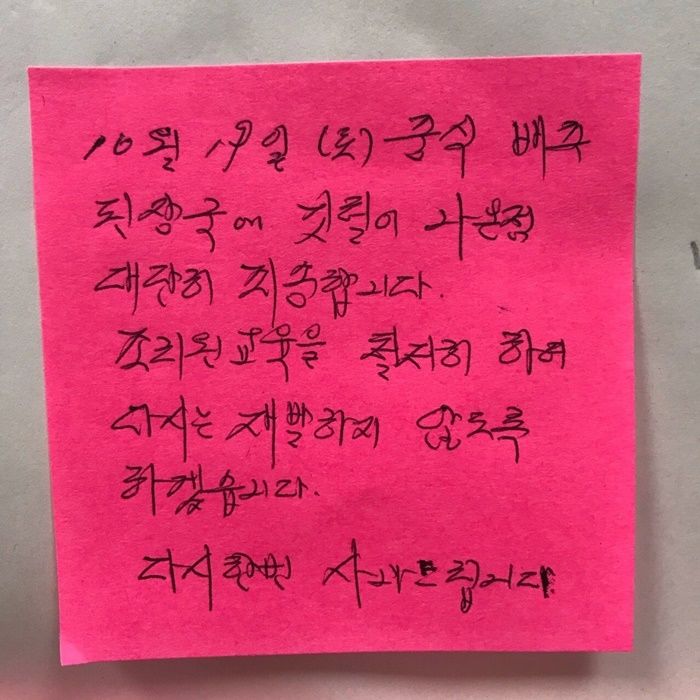 10월 19일 (토) 중식 배추
된장국에 컷털이 나온점
대단히 죄송합니다.
조리원교육을 철저히 하여
다시는 재발하지 않도록
하겠습니다.
다시한번 사과드립니다